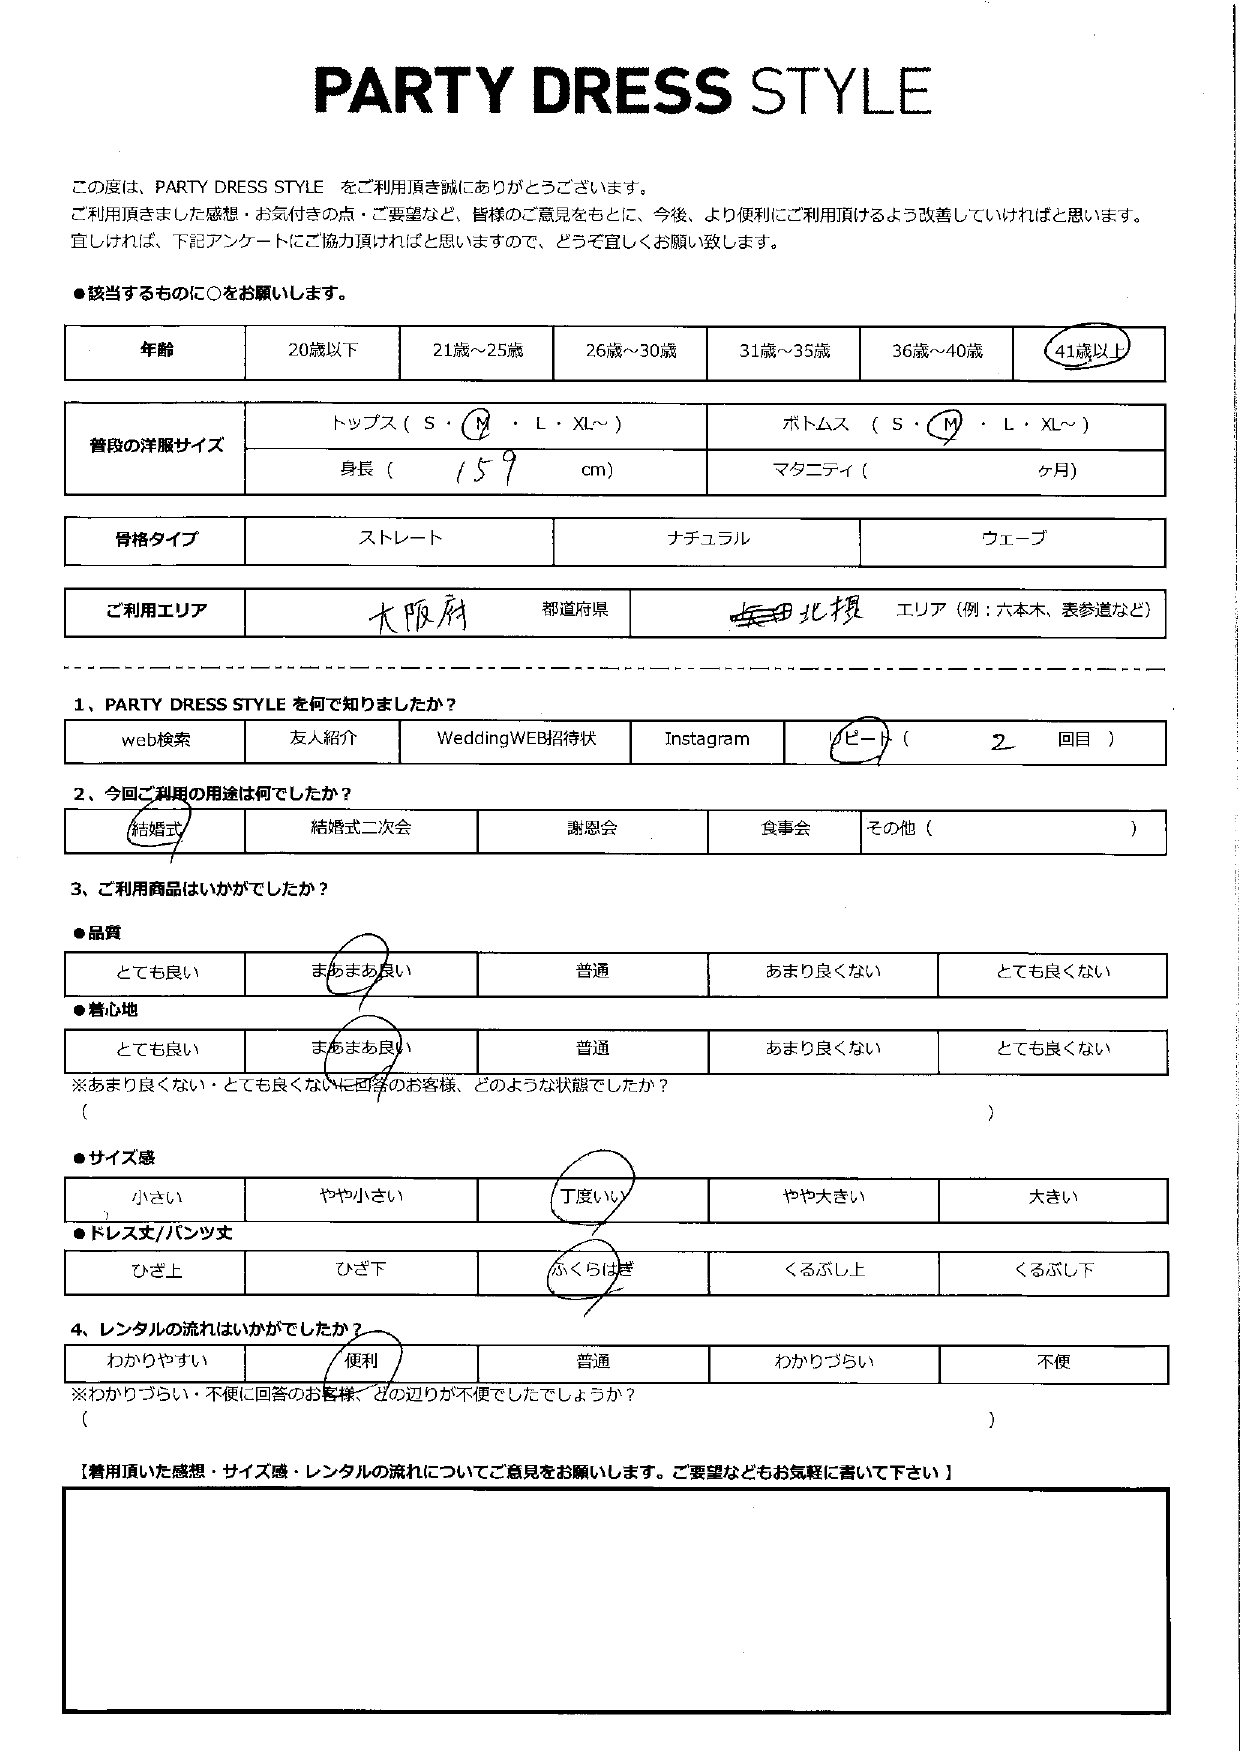 PARTY DRESS STYLE
この度は、PARTY DRESS STYLE をご利用頂き誠にありがとうございます。
ご利用頂きました感想・お気付きの点・ご要望など、皆様のご意見をもとに、今後、より便利にご利用頂けるよう改善していければと思います。
宜しければ、下記アンケートにご協力頂ければと思いますので、どうぞ宜しくお願い致します。
●該当するものに○をお願いします。
年齢 20歳以下 21歳～25歳 26歳～30歳 31歳～35歳 36歳～40歳 41歳以上
普段の洋服サイズ
トップス ( S ・ M ・ L ・ XL～ ) ボトムス ( S ・ M ・ L ・ XL～ )
身長 ( 159 cm) マタニティ ( ヶ月)
骨格タイプ ストレート ナチュラル ウェーブ
ご利用エリア 大阪府 都道府県 北摂 エリア（例：六本木、表参道など）
1、PARTY DRESS STYLE を何で知りましたか？
web検索 友人紹介 WeddingWEB招待状 Instagram リピート ( 2 回目 )
2、今回ご利用の用途は何でしたか？
結婚式 結婚式二次会 謝恩会 食事会 その他 ( )
3、ご利用商品はいかがでしたか？
●品質
とても良い まあまあ良い 普通 あまり良くない とても良くない
●着心地
とても良い まあまあ良い 普通 あまり良くない とても良くない
※あまり良くない・とても良くないに回答のお客様、どのような状態でしたか？
( )
●サイズ感
小さい やや小さい 丁度いい やや大きい 大きい
●ドレス丈/パンツ丈
ひざ上 ひざ下 ふくらはぎ くるぶし上 くるぶし下
4、レンタルの流れはいかがでしたか？
わかりやすい 便利 普通 わかりづらい 不便
※わかりづらい・不便に回答のお客様、どの辺りが不便でしたでしょうか？
( )
【着用頂いた感想・サイズ感・レンタルの流れについてご意見をお願いします。ご要望などもお気軽に書いて下さい】